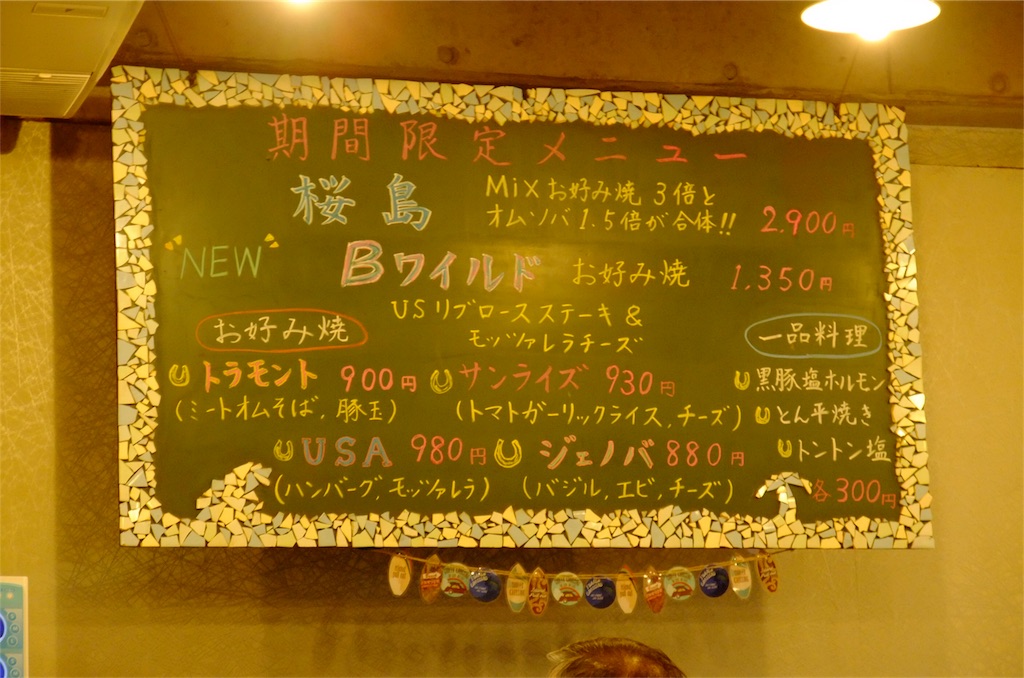 期間限定メニュー
桜島 Mixお好み焼3倍と
オムソバ1.5倍が合体!! 2,900円
NEW Bワイルド お好み焼 1,350円
USリブロースステーキ&
モッツァレラチーズ
お好み焼 一品料理
トラモント 900円 サンライズ 930円 黒豚塩ホルモン
(ミートオムそば,豚玉) (トマトガーリックライス,チーズ) とん平焼き
USA 980円 ジェノバ 880円 トントン塩
(ハンバーグ,モッツァレラ) (バジル,エビ,チーズ) 各300円